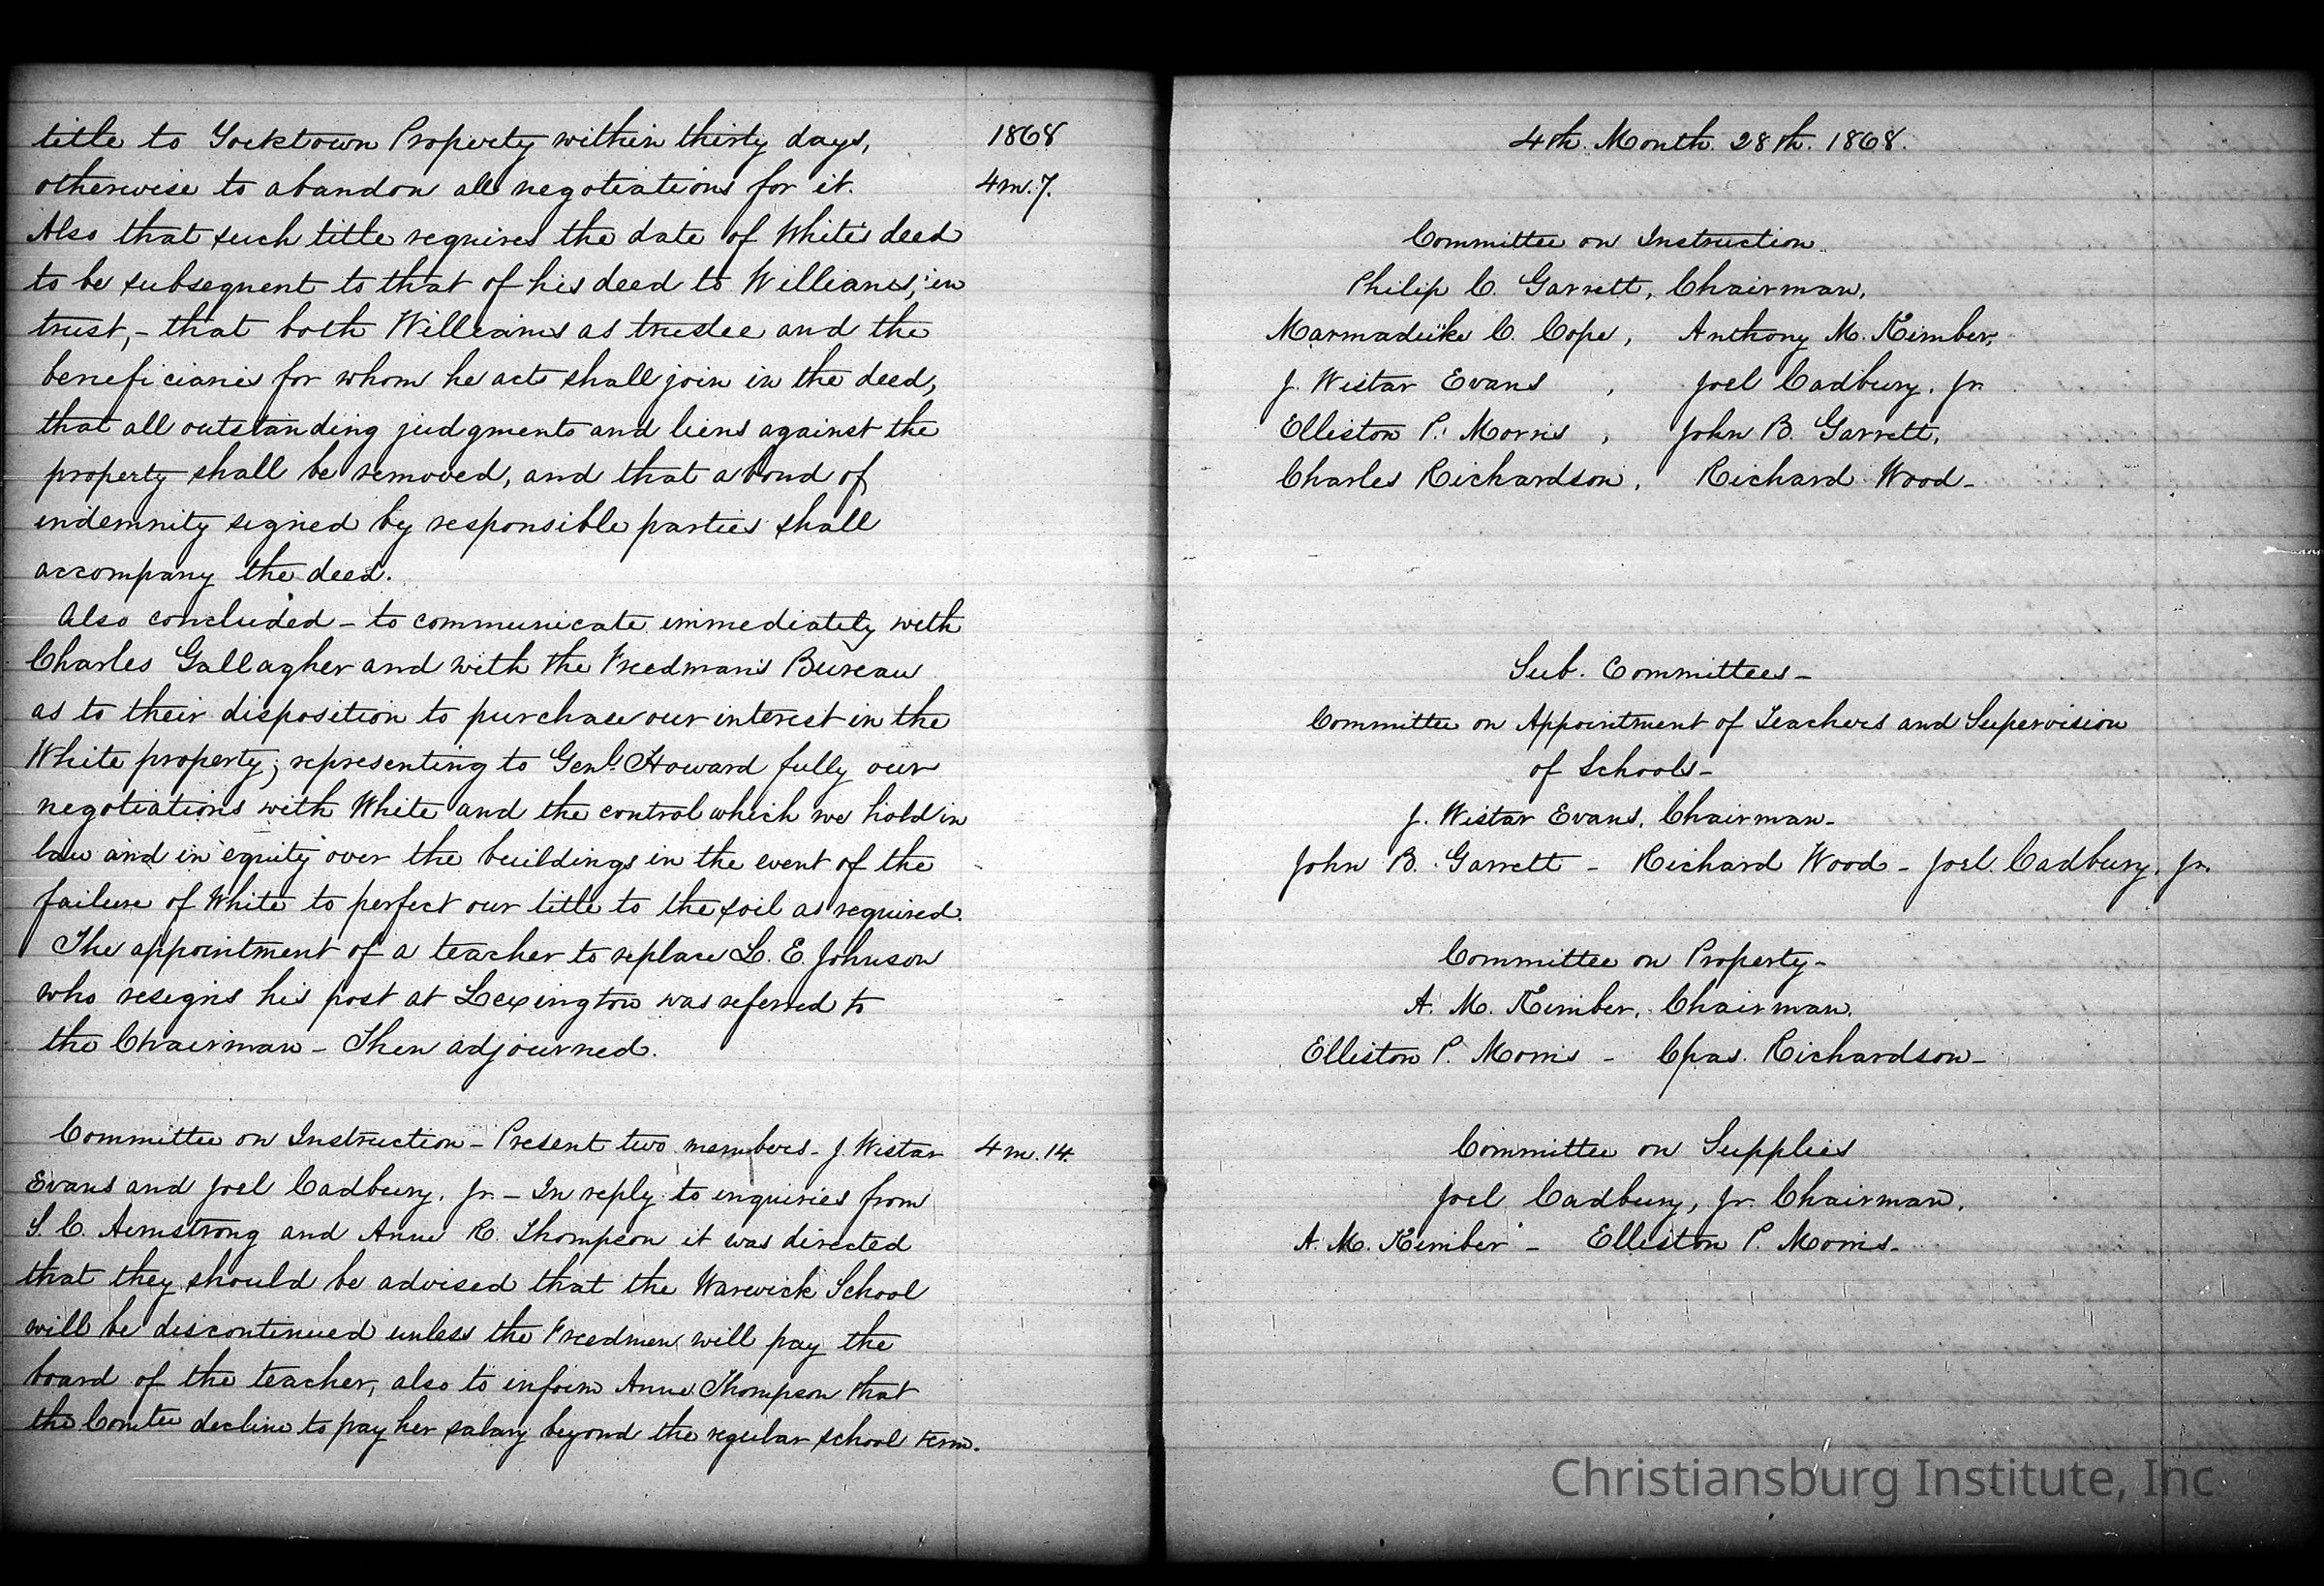 title to Yorktown Property within thirty days, 1868
otherwise to abandon all negotiations for it. 4m.7.
Also that such title requires the date of White's deed
to be subsequent to that of his deed to Williams, "in
trust,- that both Williams as trustee and the
beneficiaries for whom he acts shall join in the deed,
that all outstanding judgments and liens against the
property shall be removed, and that a bond of
indemnity signed by responsible parties shall
accompany the deed.
Also concluded - to communicate immediately with
Charles Gallagher and with the Freedman's Bureau
as to their disposition to purchase our interest in the
White property; representing to Genl. Howard fully our
negotiations with White and the control which we hold in
law and in equity over the buildings in the event of the
failure of White to perfect our title to the soil as required.
The appointment of a teacher to replace L. E. Johnson
who resigns his post at Lexington was referred to
the Chairman - Then adjourned.
Committee on Instruction - Present two members - J. Wistar 4m.14.
Evans and Joel Cadbury, Jr. - In reply to inquiries from
S. C. Armstrong and Anne R. Thompson it was directed
that they should be advised that the Warwick School
will be discontinued unless the Freedmen will pay the
board of the teacher, also to inform Anne Thompson that
the Comtee decline to pay her salary beyond the regular school term.
4th. Month. 28th. 1868.
Committee on Instruction
Philip C. Garrett, Chairman,
Marmaduke C. Cope, Anthony M. Kimber,
J. Wistar Evans, Joel Cadbury, Jr.
Elliston P. Morris, John B. Garrett,
Charles Richardson, Richard Wood-
Sub. Committees-
Committee on Appointment of Teachers and Supervision
of Schools-
J. Wistar Evans, Chairman-
John B. Garrett - Richard Wood - Joel Cadbury, Jr.
Committee on Property-
A. M. Kimber, Chairman.
Elliston P. Morris - Chas. Richardson-
Committee on Supplies
Joel Cadbury, Jr. Chairman.
A. M. Kimber - Elliston P. Morris-
Christiansburg Institute, Inc